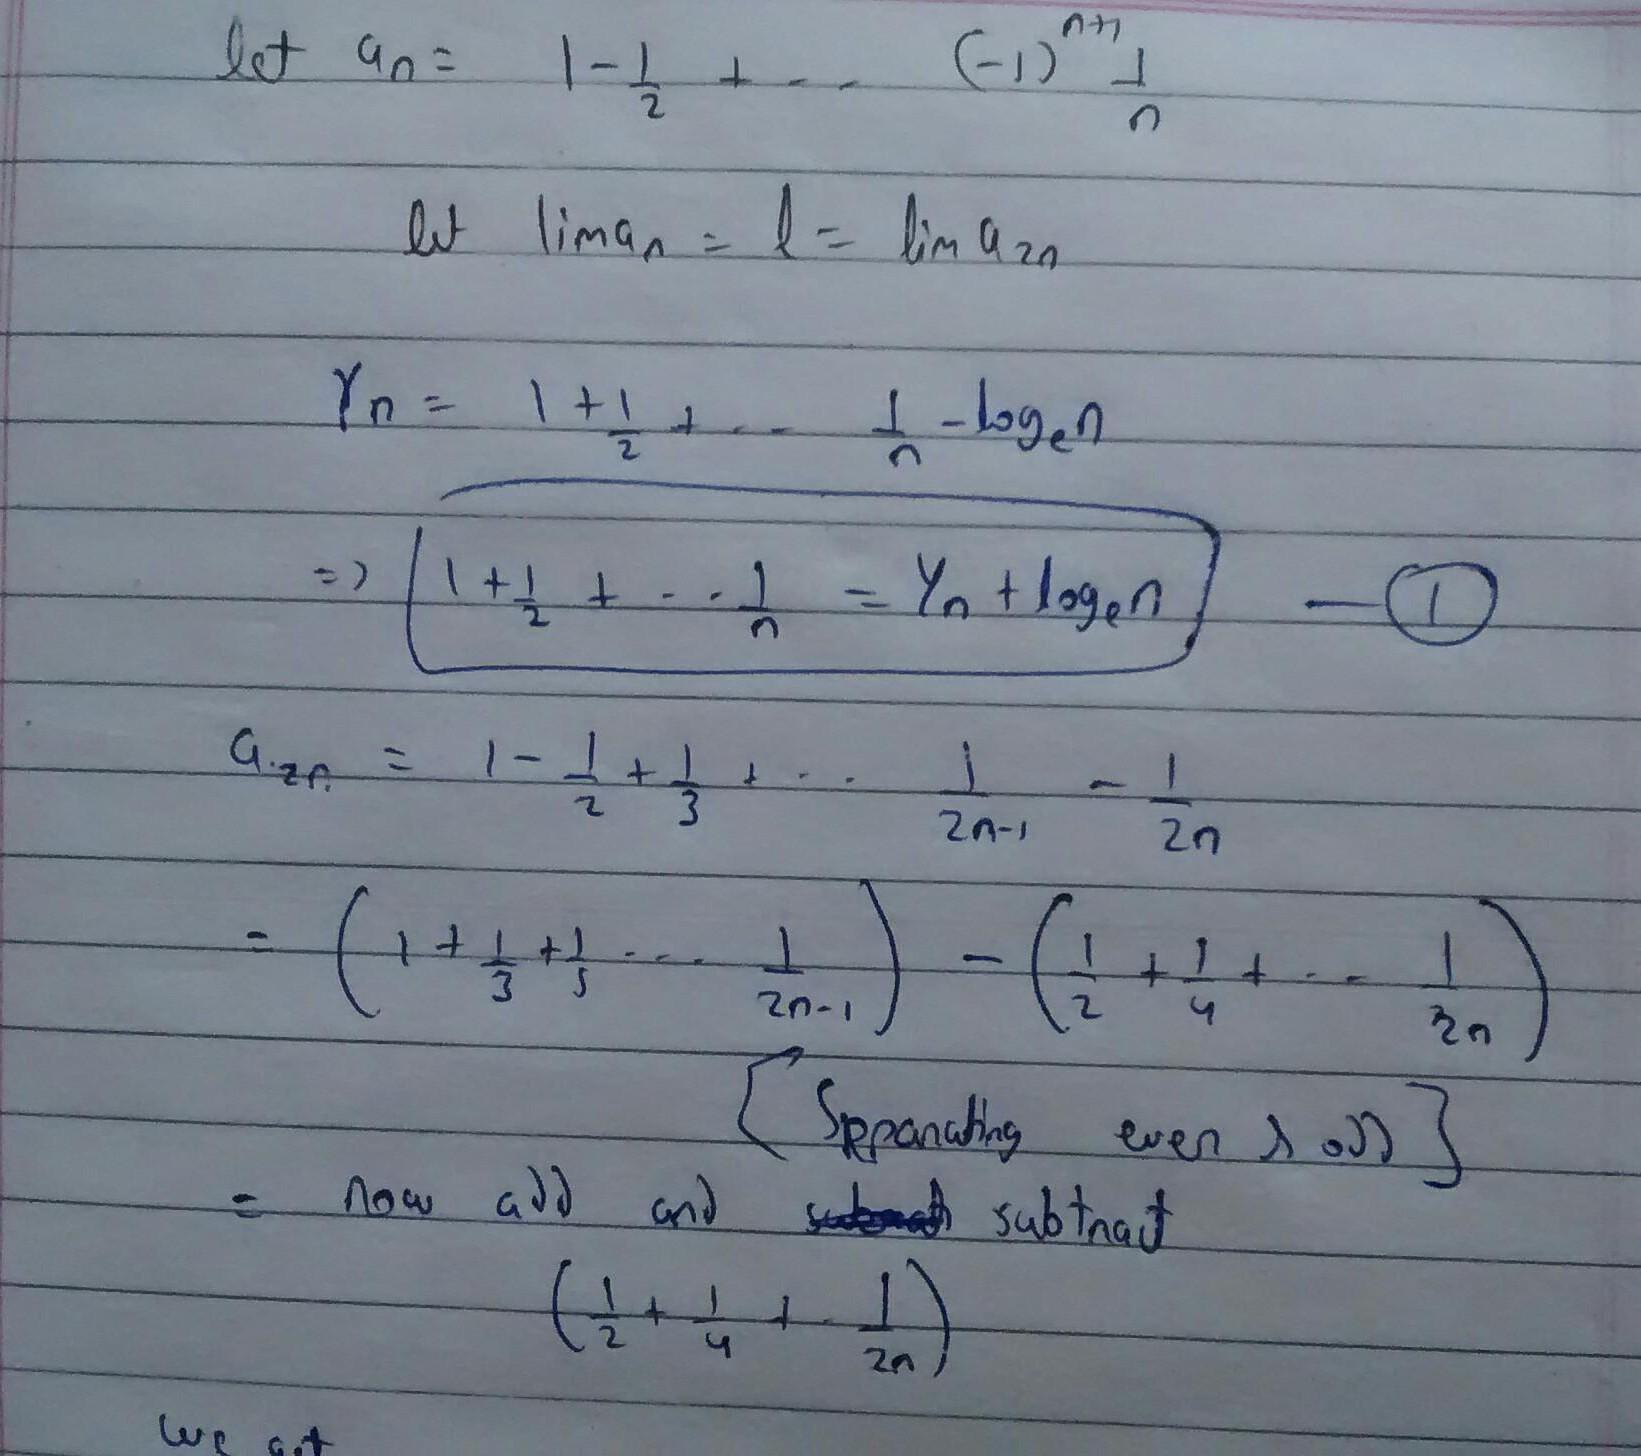 let aₙ = 1 - 1/2 + -- (-1)ⁿ⁺¹ 1/n
let lim aₙ = l = lim a₂ₙ
γₙ = 1 + 1/2 + -- 1/n - logₑn
=> 1 + 1/2 + -- 1/n = γₙ + logₑn — ①
a₂ₙ = 1 - 1/2 + 1/3 + -- 1/(2n-1) - 1/2n
= (1 + 1/3 + 1/5 --- 1/(2n-1)) - (1/2 + 1/4 + -- 1/2n)
[Spparating even & odd]
= now add and subtract
(1/2 + 1/4 + - 1/2n)
we get